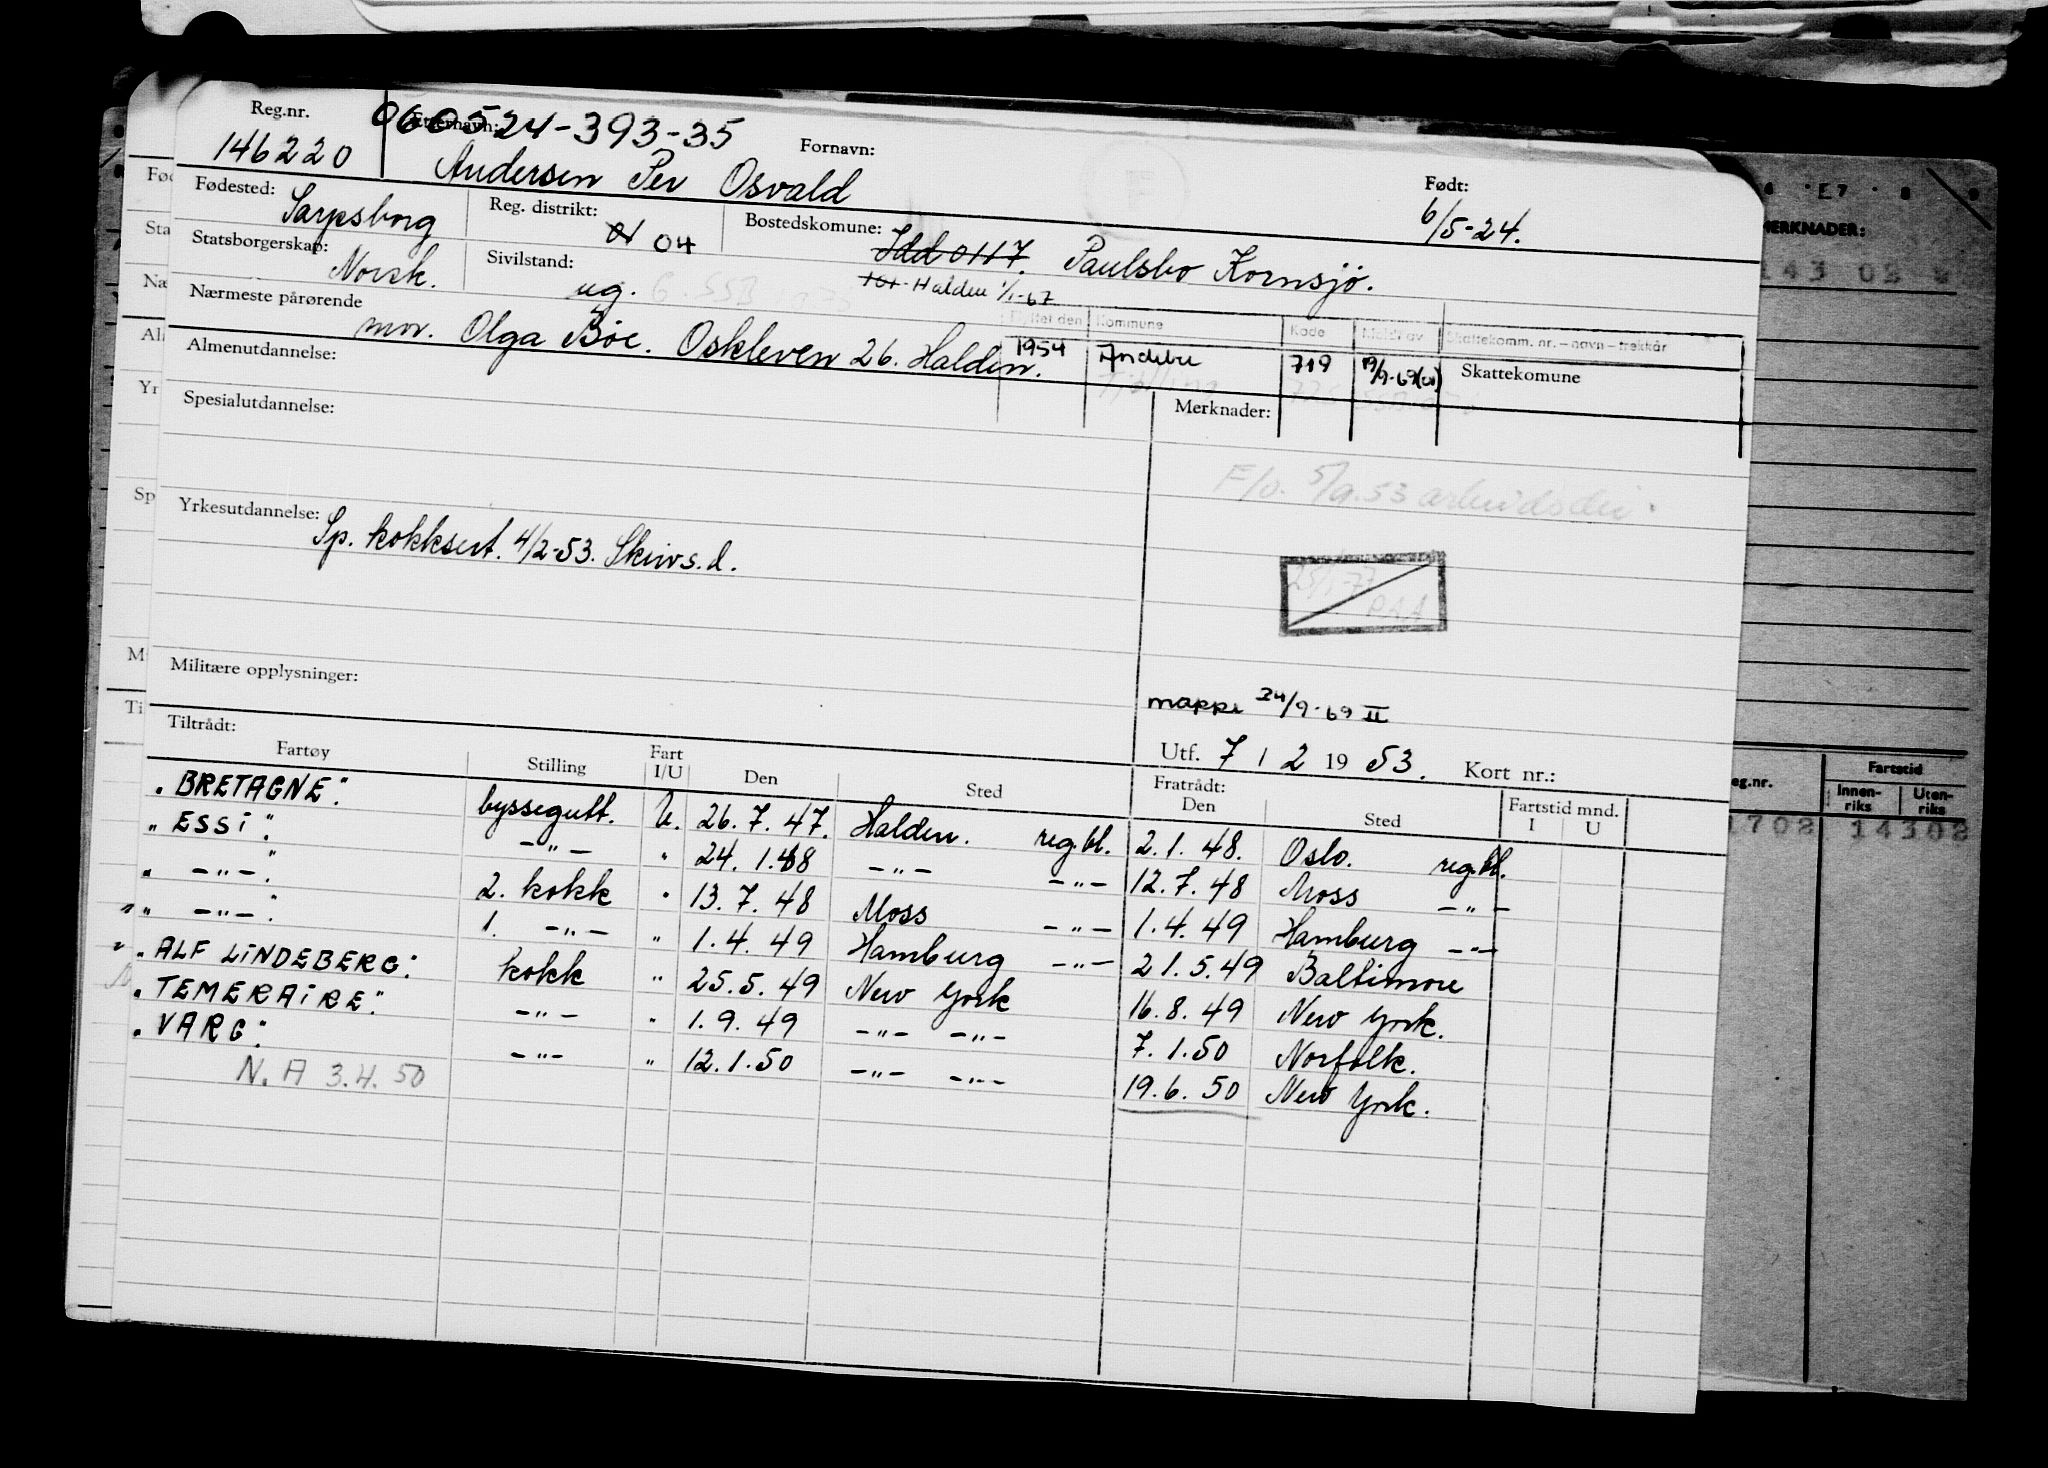 Reg.nr. 060524-393-35
146220 Etternavn: Andersen Per Osvald Fornavn: Født: 6/5-24.
Fødested: Sarpsborg Reg. distrikt: 01 04 Bostedskomune: Idd 0117. Paulsbo Kornsjø.
Statsborgerskap: Norsk. Sivilstand: ug. Halden 1/1-67
Nærmeste pårørende mor. Olga Bøe. Oskleven 26. Halden.
Flyttet den Kommune Kode Meldt av Skattekomm. nr. – navn – trekkår
1954 Andebu 719 19/9-69 Skattekomune
Almenutdannelse:
Spesialutdannelse: Merknader:
F/o. 5/9.53
Yrkesutdannelse: Sp. kokksert. 4/2-53. Skiv s.d.
Militære opplysninger:
mappe 24/9-69 II
Utf. 7 / 2 19 53. Kort nr.:
Tiltrådt: Fratrådt:
Fartøy Stilling Fart I/U Den Sted Den Sted Fartstid mnd. I U
"BRETAGNE". byssegutt. U. 26.7.47. Halden. reg.bl. 2.1.48. Oslo. reg.bl.
"ESSI". -"- " 24.1.48 -"- -"- 12.7.48 Moss -"-
" -"- ". 2. kokk " 13.7.48 Moss -"- 1.4.49 Hamburg -"-
" -"- ". 1. -"- " 1.4.49 Hamburg -"- 21.5.49 Baltimore
"ALF LINDEBERG". kokk " 25.5.49 New York 16.8.49 New York.
"TEMERAIRE". -"- " 1.9.49 -"- -"- 7.1.50 Norfolk.
"VARG". -"- " 12.1.50 -"- -"- 19.6.50 New York.
N.A 3.4.50
MERKNADER:
143 02
eg.nr. Fartstid
Innen-riks Uten-riks
1702 14302